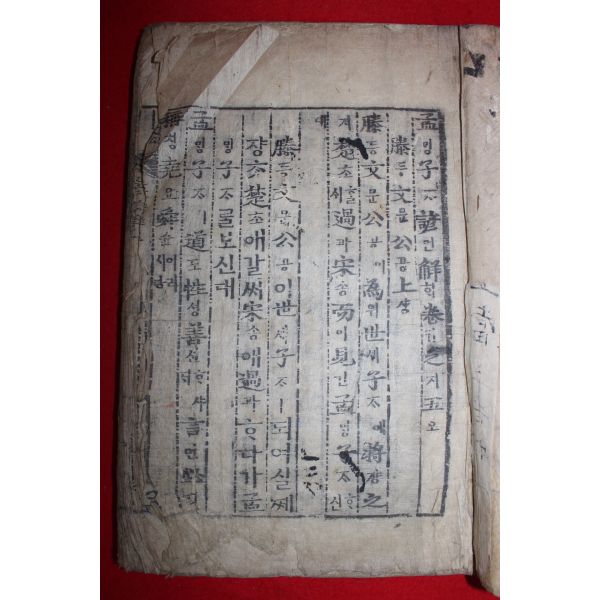 孟ᄆᆡᆼ子ᄌᆞ諺언解ᄒᆡ卷권之지五오
滕등文문公공上샹
滕등文문公공이爲위世셰子ᄌᆞ에將쟝之
지楚초ᄒᆞᆯ시過과宋송而이見견孟ᄆᆡᆼ子ᄌᆞᄒᆞ신
대
滕등文문公공이世셰子ᄌᆞㅣ되여실ᄶᅦ
쟝ᄎᆞᆺ楚초애갈ᄉᆡ宋송애過과ᄒᆞ다가孟
ᄆᆡᆼ子ᄌᆞᄅᆞᆯ보신대
孟ᄆᆡᆼ子ᄌᆞㅣ道도性셩善션ᄒᆞ샤ᄃᆡ言언
稱칭堯요舜슌이러시다